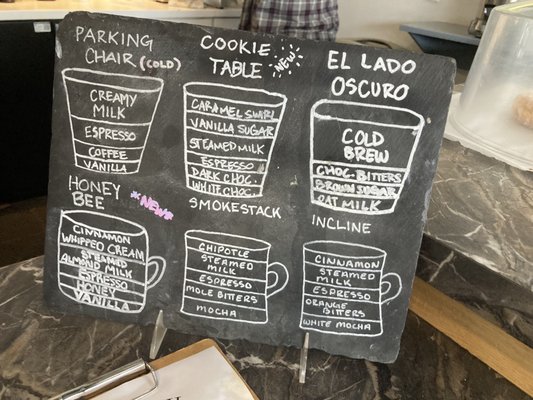 PARKING
CHAIR (COLD)
CREAMY
MILK
ESPRESSO
COFFEE
VANILLA
COOKIE
TABLE NEW
CARAMEL SWIRL
VANILLA SUGAR
STEAMED MILK
ESPRESSO
DARK CHOC.
WHITE CHOC.
EL LADO
OSCURO
COLD
BREW
CHOC. BITTERS
BROWN SUGAR
OAT MILK
HONEY
BEE *NEW*
CINNAMON
WHIPPED CREAM
STEAMED
ALMOND MILK
ESPRESSO
HONEY
VANILLA
SMOKESTACK
CHIPOTLE
STEAMED
MILK
ESPRESSO
MOLE BITTERS
MOCHA
INCLINE
CINNAMON
STEAMED
MILK
ESPRESSO
ORANGE
BITTERS
WHITE MOCHA